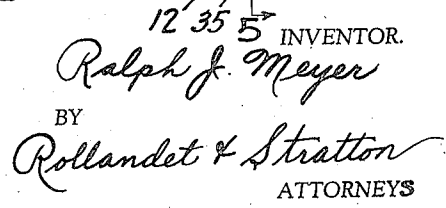 12 35 5 INVENTOR.
Ralph J. Meyer
BY
Rollandet & Stratton
ATTORNEYS